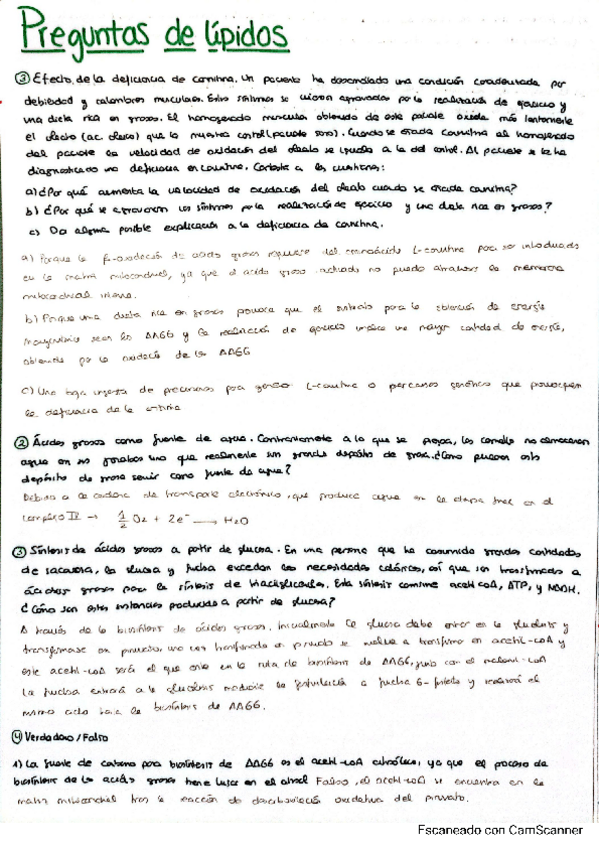 Preguntas de lípidos
③ Efecto de la deficiencia de carnitina. Un paciente ha desarrollado una condición caracterizada por
debilidad y calambres musculares. Estos síntomas se vieron agravados por la realización de ejercicio y
una dieta rica en grasos. El homogenado muscular obtenido de este paciente oxida más lentamente
el oleato (ac. oleico) que la muestra control (paciente sano). Cuando se añade carnitina al homogenado
del paciente la velocidad de oxidación del oleato se iguala a la del control. Al paciente se le ha
diagnosticado una deficiencia en carnitina. Contesta a las cuestiones:
a) ¿Por qué aumenta la velocidad de oxidación del oleato cuando se añade carnitina?
b) ¿Por qué se agravaron los síntomas por la realización de ejercicio y una dieta rica en grasos?
c) Da alguna posible explicación a la deficiencia de carnitina.
a) Porque la β-oxidación de ácidos grasos requiere del L-carnitina para ser introducidos
en la matriz mitocondrial, ya que el ácido graso activado no puede atravesar la membrana
mitocondrial interna.
b) Porque una dieta rica en grasos provoca que el sustrato para la obtención de energía
mayoritario sean los AAGG y la realización de ejercicio implica una mayor cantidad de energía,
obtenida por la oxidación de los AAGG
c) Una baja ingesta de precursores para generar L-carnitina o genéticos que provoquen
la deficiencia de la carnitina
② Ácidos grasos como fuente de agua. Contrariamente a lo que se piensa, los camellos no almacenan
agua en sus jorobas sino que realmente son grandes depósitos de grasa. ¿Cómo pueden estos
depósitos de grasa servir como fuente de agua?
Debido a la cadena de transporte electrónico, que produce agua en la etapa final en el
complejo IV → 1/2 O2 + 2e⁻ → H2O
③ Síntesis de ácidos grasos a partir de glucosa. En una persona que ha consumido grandes cantidades
de sacarosa, la glucosa y fructosa exceden las necesidades calóricas, así que son transformadas a
ácidos grasos para la síntesis de triacilglicéridos. Esta síntesis consume acetil coA, ATP, y NADPH.
¿Cómo son estas sustancias producidas a partir de glucosa?
A través de la biosíntesis de ácidos grasos. Inicialmente la glucosa debe entrar en la glucólisis y
transformarse en piruvato, una vez transformada en piruvato se vuelve a transformar en acetil-coA y
este acetil-coA será el que entre en la ruta de biosíntesis de AAGG, junto con el malonil-coA
La fructosa entrará a la glucólisis mediante la fosforilación a fructosa 6-fosfato y realizará el
mismo ciclo hacia la biosíntesis de AAGG.
④ Verdadero/Falso
1) La fuente de carbono para biosíntesis de AAGG es el acetil-coA citosólico, ya que el proceso de
biosíntesis de los ácidos grasos tiene lugar en el citosol Falso, el acetil-coA se encuentra en la
matriz mitocondrial tras la reacción de descarboxilación oxidativa del piruvato.
Escaneado con CamScanner